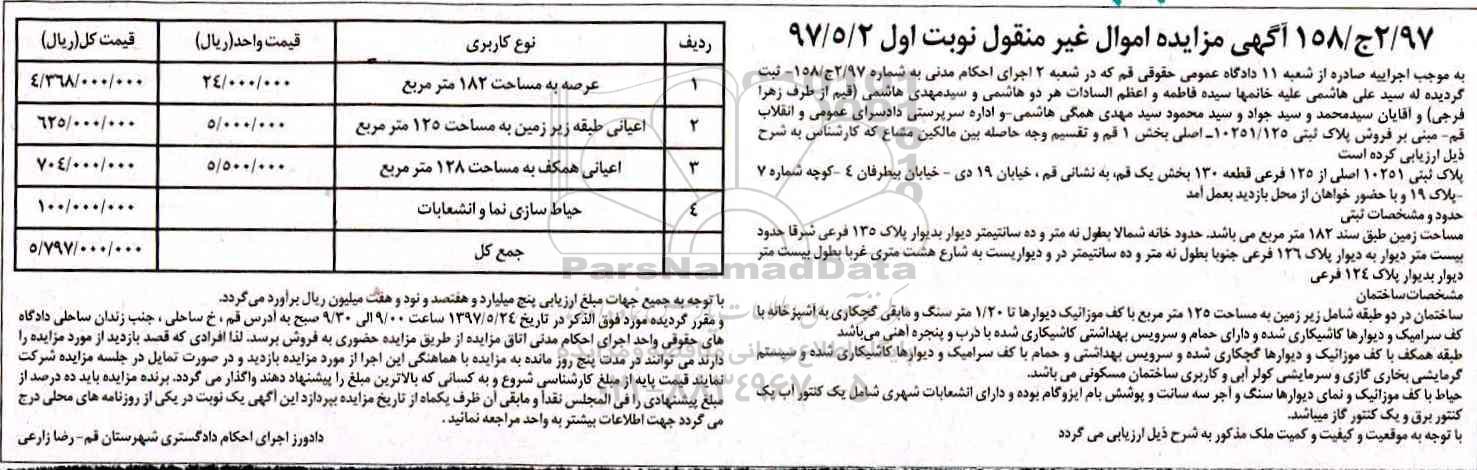 ۲/۹۷ج/۱۵۸ آگهی مزایده اموال غیر منقول نوبت اول ۹۷/۵/۲
به موجب اجراییه صادره از شعبه ۱۱ دادگاه عمومی حقوقی قم که در شعبه ۲ اجرای احکام مدنی به شماره ۲/۹۷ج/۱۵۸- ثبت
گردیده له سید علی هاشمی علیه خانمها سیده فاطمه و اعظم السادات هر دو هاشمی و سیدمهدی هاشمی (قیم از طرف زهرا
فرجی) و آقایان سیدمحمد و سید جواد و سید محمود سید مهدی همگی هاشمی-و اداره سرپرستی دادسرای عمومی و انقلاب
قم- مبنی بر فروش پلاک ثبتی ۱۰۲۵۱/۱۲۵ـ اصلی بخش ۱ قم و تقسیم وجه حاصله بین مالکین مشاع که کارشناس به شرح
ذیل ارزیابی کرده است
پلاک ثبتی ۱۰۲۵۱ اصلی از ۱۲۵ فرعی قطعه ۱۳۰ بخش یک قم، به نشانی قم ، خیابان ۱۹ دی - خیابان بیطرفان ٤ -کوچه شماره ۷
-پلاک ۱۹ و با حضور خواهان از محل بازدید بعمل آمد
حدود و مشخصات ثبتی
مساحت زمین طبق سند ۱۸۲ متر مربع می باشد. حدود خانه شمالا بطول نه متر و ده سانتیمتر دیوار بدیوار پلاک ۱۳۵ فرعی شرقا حدود
بیست متر دیوار به دیوار پلاک ۱۲٦ فرعی جنوبا بطول نه متر و ده سانتیمتر در و دیواریست به شارع هشت متری غربا بطول بیست متر
دیوار بدیوار پلاک ۱۲٤ فرعی
مشخصات ساختمان
ساختمان در دو طبقه شامل زیر زمین به مساحت ۱۲۵ متر مربع با کف موزائیک دیوارها تا ۱/۲۰ متر سنگ و مابقی گچکاری به آشپزخانه با
کف سرامیک و دیوارها کاشیکاری شده و دارای حمام و سرویس بهداشتی کاشیکاری شده با درب و پنجره آهنی می‌باشد
طبقه همکف با کف موزائیک و دیوارها گچکاری شده و سرویس بهداشتی و حمام با کف سرامیک و دیوارها کاشیکاری شده و سیستم
گرمایشی بخاری گازی و سرمایشی کولر آبی و کاربری ساختمان مسکونی می باشد.
حیاط با کف موزائیک و نمای دیوارها سنگ و آجر سه سانت و پوشش بام ایزوگام بوده و دارای انشعابات شهری شامل یک کنتور آب یک
کنتور برق و یک کنتور گاز میباشد.
با توجه به موقعیت و کیفیت و کمیت ملک مذکور به شرح ذیل ارزیابی می گردد
ردیف نوع کاربری قیمت واحد(ریال) قیمت کل(ریال)
۱ عرصه به مساحت ۱۸۲ متر مربع ۲٤/۰۰۰/۰۰۰ ٤/۳٦۸/۰۰۰/۰۰۰
۲ اعیانی طبقه زیر زمین به مساحت ۱۲۵ متر مربع ۵/۰۰۰/۰۰۰ ٦۲۵/۰۰۰/۰۰۰
۳ اعیانی همکف به مساحت ۱۲۸ متر مربع ۵/۵۰۰/۰۰۰ ۷۰٤/۰۰۰/۰۰۰
٤ حیاط سازی نما و انشعابات ۱۰۰/۰۰۰/۰۰۰
جمع کل ۵/۷۹۷/۰۰۰/۰۰۰
با توجه به جمیع جهات مبلغ ارزیابی پنج میلیارد و هفتصد و نود و هفت میلیون ریال برآورد می‌گردد.
و مقرر گردیده مورد فوق الذکر در تاریخ ۱۳۹۷/۵/۲٤ ساعت ۹/۰۰ الی ۹/۳۰ صبح به آدرس قم ، خ ساحلی ، جنب زندان ساحلی دادگاه
های حقوقی واحد اجرای احکام مدنی اتاق مزایده از طریق مزایده حضوری به فروش برسد. لذا افرادی که قصد بازدید از مورد مزایده را
دارند می توانند در مدت پنج روز مانده به مزایده با هماهنگی این اجرا از مورد مزایده بازدید و در صورت تمایل در جلسه مزایده شرکت
نمایند قیمت پایه از مبلغ کارشناسی شروع و به کسانی که بالاترین مبلغ را پیشنهاد دهند واگذار می گردد. برنده مزایده باید ده درصد از
مبلغ پیشنهادی را فی المجلس نقداً و مابقی آن ظرف یکماه از تاریخ مزایده بپردازد این آگهی یک نوبت در یکی از روزنامه های محلی درج
می گردد جهت اطلاعات بیشتر به واحد مراجعه نمائید .
دادورز اجرای احکام دادگستری شهرستان قم- رضا زارعی
ParsNamadData